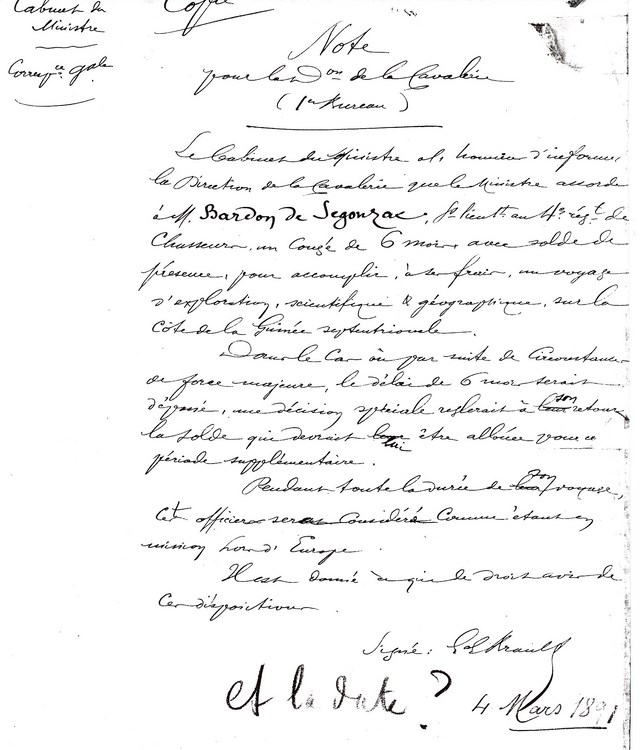 Cabinet du
Ministre
Corresp.ce gale
Copie
Note
pour la Don de la Cavalerie
(1er Bureau)
Le Cabinet du Ministre a l'honneur d'informer
la Direction de la Cavalerie que le Ministre accorde
à M. Bardon de Segonzac, Ss lieutt au 4e régt de
Chasseurs, un Congé de 6 mois, avec solde de
présence, pour accomplir, à ses frais, un voyage
d'exploration, scientifique & géographique, sur la
côte de la Guinée septentrionale.
Dans le Cas où par suite de Circonstances
de force majeure, le délai de 6 mois serait
dépassé, une décision spéciale réglerait à leur son retour
la solde qui devrait leur lui être allouée pour ce
période supplémentaire.
Pendant toute la durée de leur son voyage,
Cet officier sera Considéré Comme étant en
mission hors d'Europe.
Il est donné à qui de droit avis de
Ces dispositions
Signé : Gal
et la date ?
4 Mars 1891